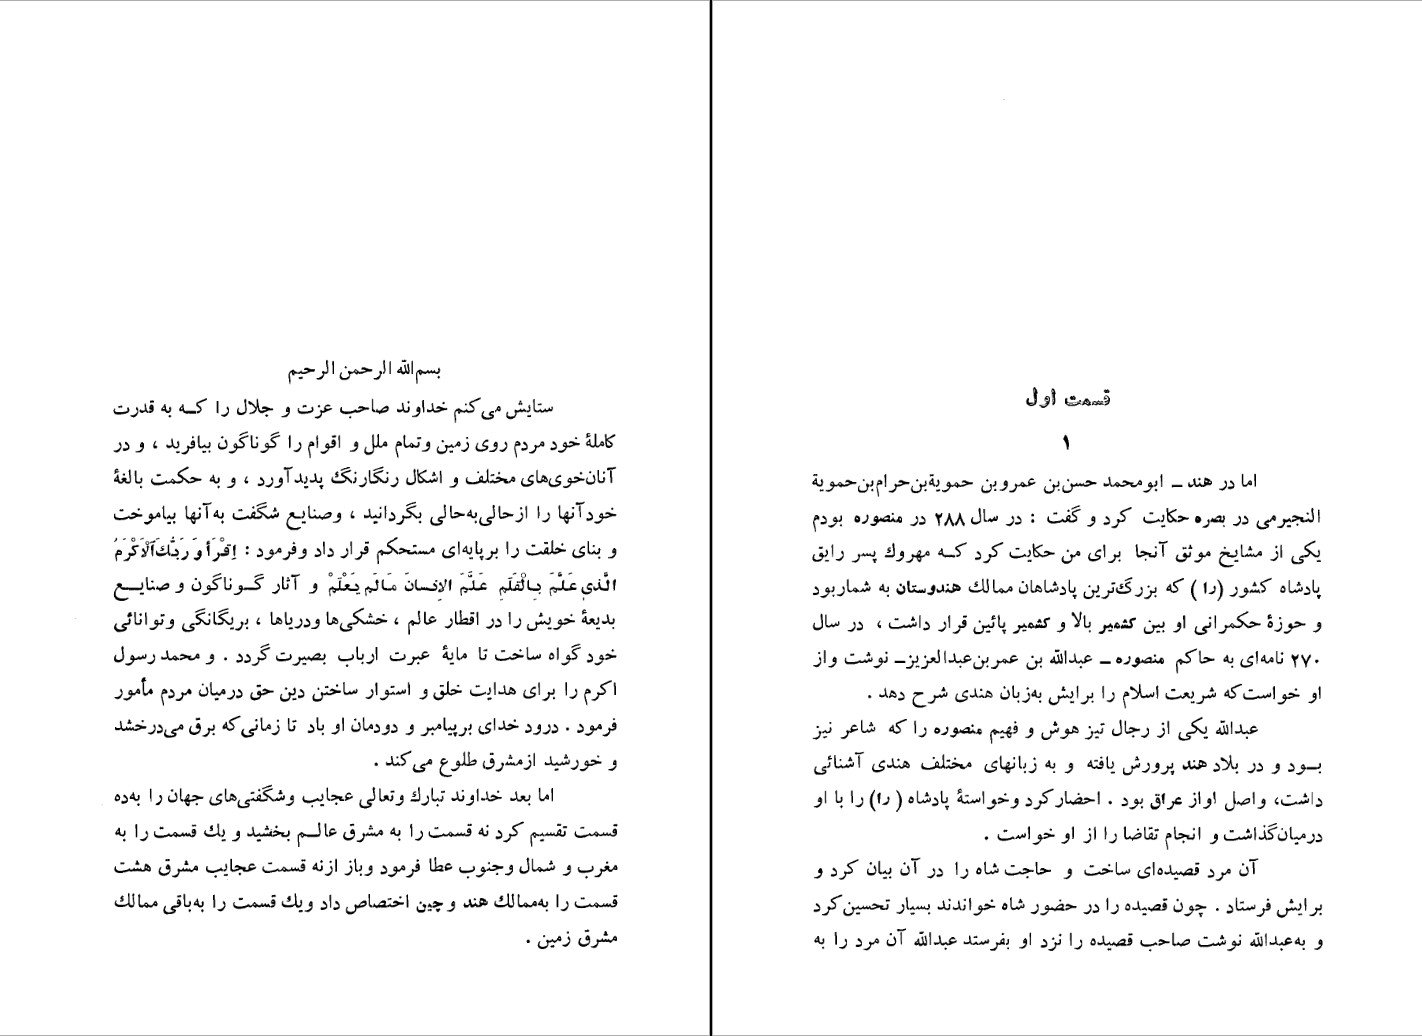 بسم‌الله الرحمن الرحیم
ستایش می‌کنم خداوند صاحب عزت و جلال را کـه به قدرت
کاملهٔ خود مردم روی زمین وتمام ملل و اقوام را گوناگون بیافرید ، و در
آنان‌خوی‌های مختلف و اشکال رنگارنگ پدیدآورد ، و به حکمت بالغهٔ
خودآنها را ازحالی‌به‌حالی بگردانید ، وصنایع شگفت به‌آنها بیاموخت
و بنای خلقت را برپایه‌ای مستحکم قرار داد وفرمود : اِقْرَأ وَ رَبُّكَ‌آلْاَكْرَمُ
الَّذي عَلَّمَ بِـالْقَلَمِ عَلَّمَ الاِنسانَ مَـالَم يَعْلَمْ و آثار گـوناگون و صنایـع
بدیعهٔ خویش را در اقطار عالم ، خشکی‌ها ودریاها ، بریگانگی وتوانائی
خود گواه ساخت تا مایهٔ عبرت ارباب بصیرت گردد . و محمد رسول
اکرم را برای هدایت خلق و استوار ساختن دین حق درمیان مردم مأمور
فرمود . درود خدای برپیامبر و دودمان او باد تا زمانی‌که برق می‌درخشد
و خورشید ازمشرق طلوع می‌کند .
اما بعد خداوند تبارك وتعالی عجایب وشگفتی‌های جهان را به‌ده
قسمت تقسیم کرد نه قسمت را به مشرق عالـم بخشید و یك قسمت را به
مغرب و شمال وجنوب عطا فرمود وباز ازنه قسمت عجایب مشرق هشت
قسمت را به‌ممالك هند و چین اختصاص داد ویك قسمت را به‌باقی ممالك
مشرق زمین .
قسمت اول
۱
اما در هند ـ ابومحمد حسن‌بن عمروبن حمویة‌بن‌حرام‌بن‌حمویة
النجیرمی در بصره حکایت کرد و گفت : در سال ۲۸۸ در منصوره بودم
یکی از مشایخ موثق آنجا برای من حکایت کرد کـه مهروك پسر رایق
پادشاه کشور (را ) که بزرگ‌ترین پادشاهان ممالك هندوستان به شماربود
و حوزهٔ حکمرانی او بین کشمیر بالا و کشمیر پائین قرار داشت ، در سال
۲۷۰ نامه‌ای به حاکم منصوره ـ عبدالله بن عمربن‌عبدالعزیزـ نوشت واز
او خواست‌که شریعت اسلام را برایش به‌زبان هندی شرح دهد .
عبدالله یکی از رجال تیز هوش و فهیم منصوره را که شاعر نیز
بـود و در بلاد هند پرورش یافته و به زبانهای مختلف هندی آشنائی
داشت، واصل اواز عراق بود . احضارکرد وخواستهٔ پادشاه ( را) را با او
درمیان‌گذاشت و انجام تقاضا را از او خواست .
آن مرد قصیده‌ای ساخت و حاجت شاه را در آن بیان کرد و
برایش فرستاد . چون قصیده را در حضور شاه خواندند بسیار تحسین‌کرد
و به‌عبدالله نوشت صاحب قصیده را نزد او بفرستد عبدالله آن مرد را به